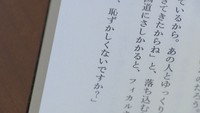 ているから。あの人とゆっくり
きてきたからね」と、落ち込む
道にさしかかると、フィカル
、恥ずかしくないですか？」